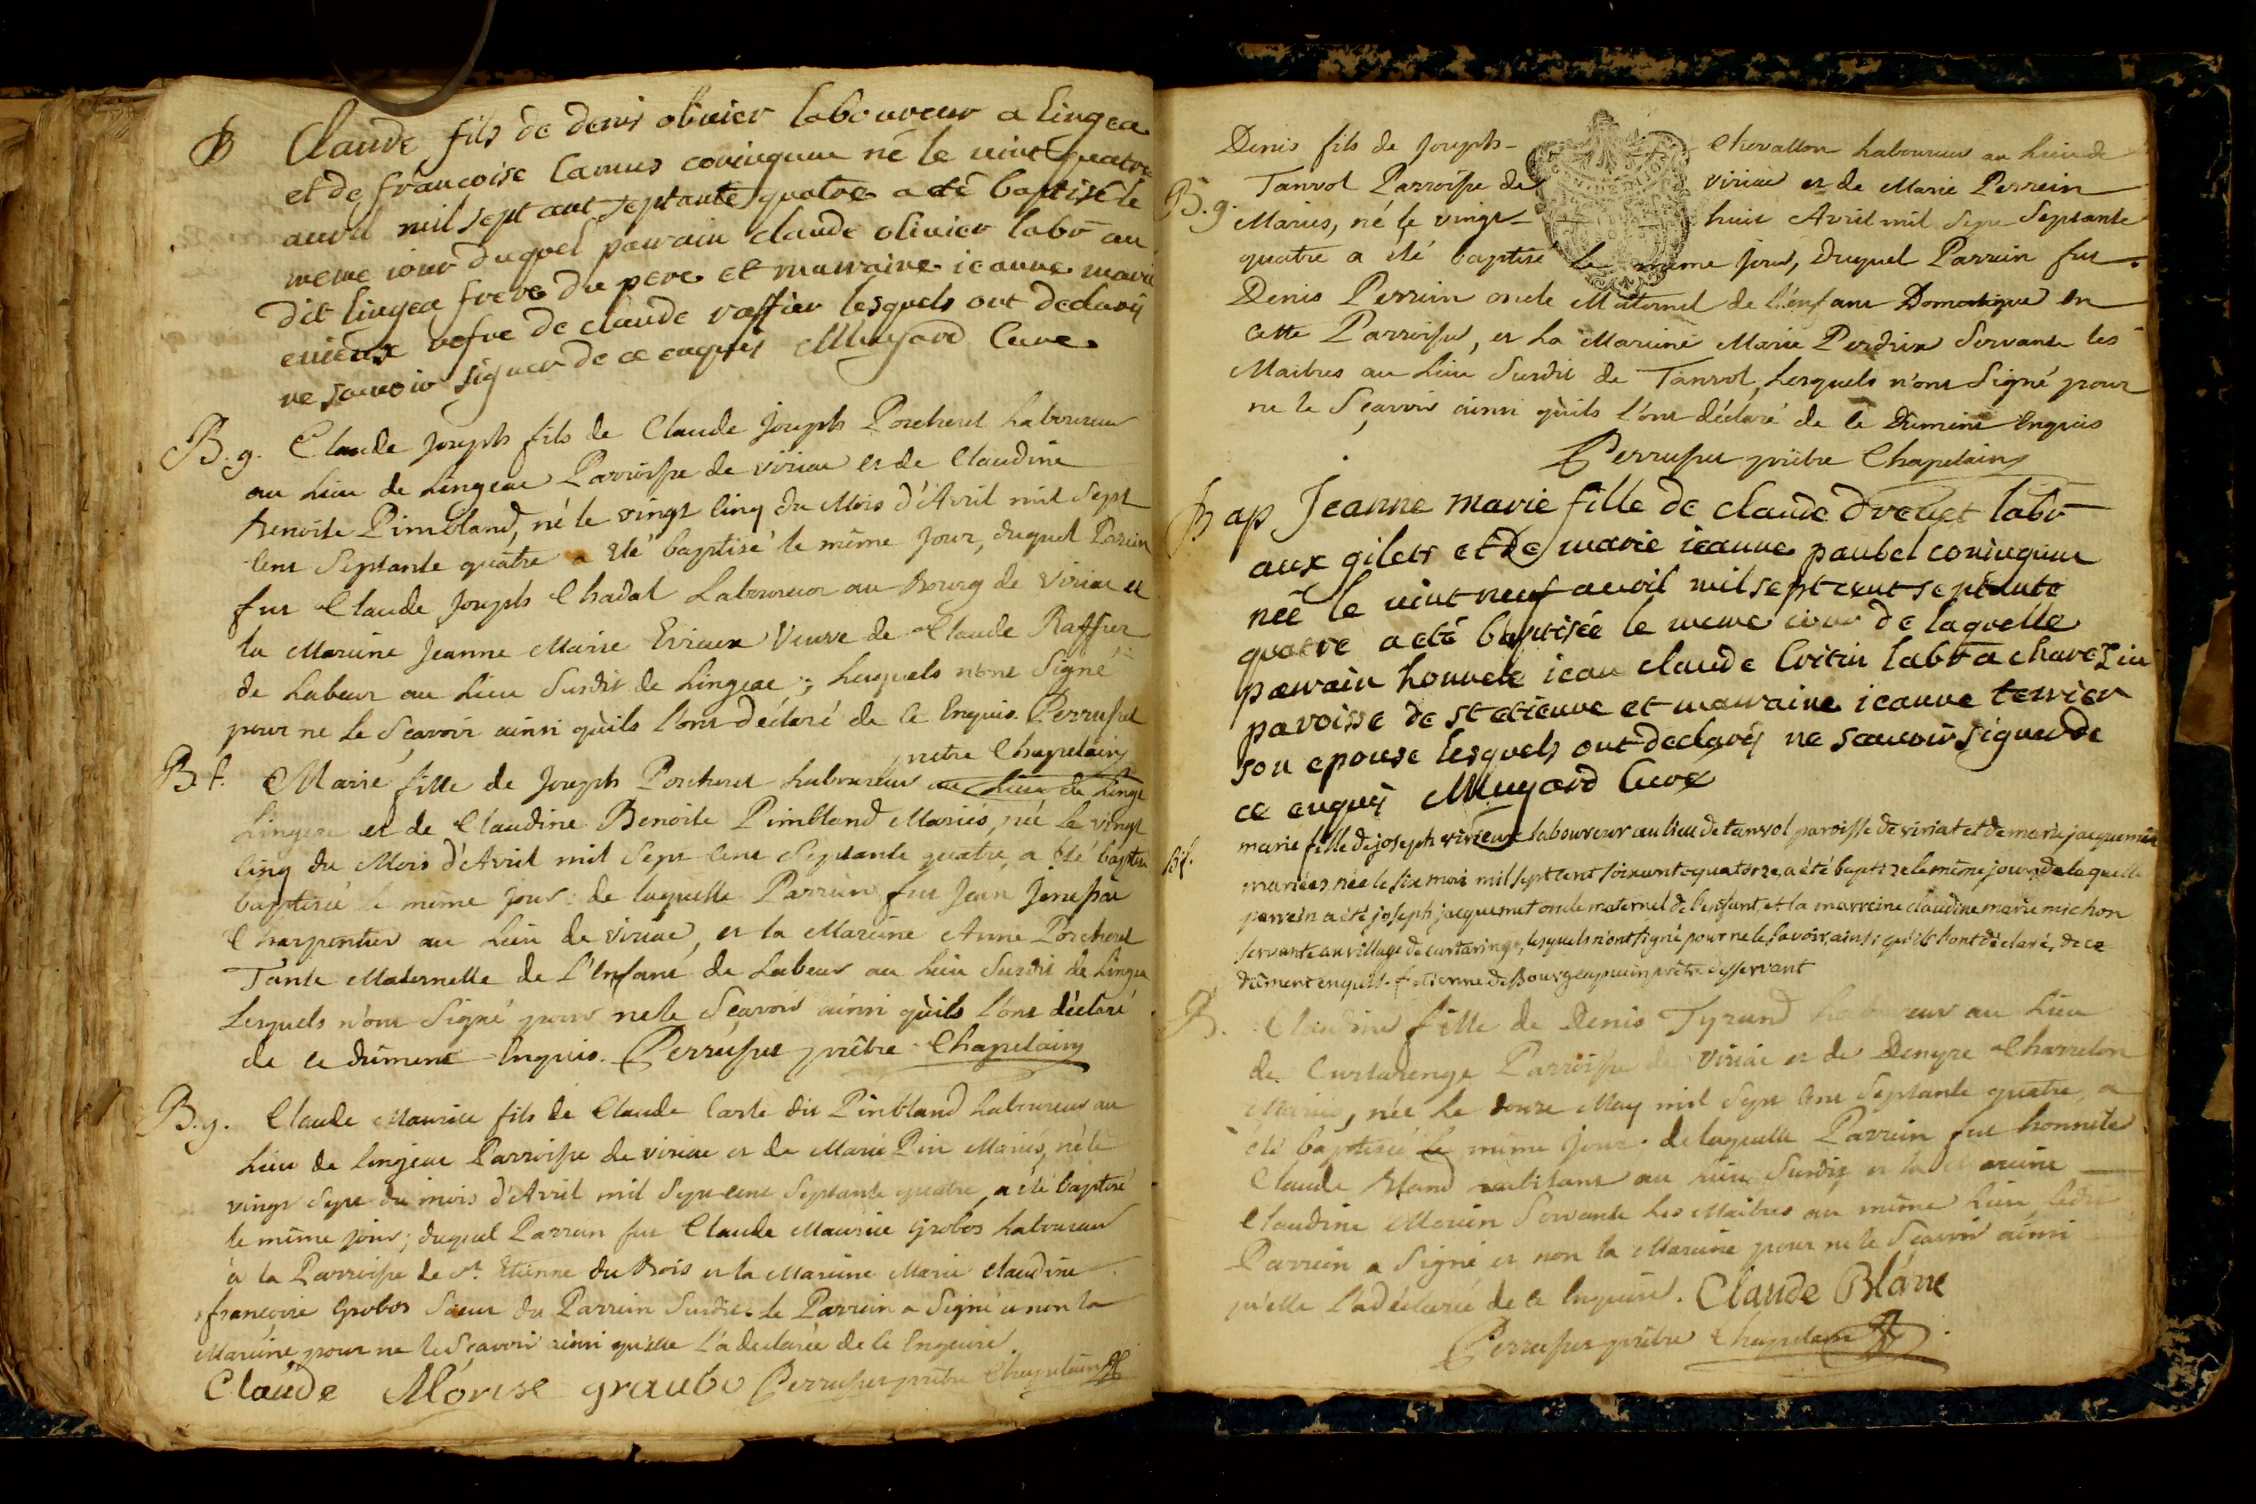 B Claude fils de denis olivier laboureur a lingea
et de francoise Camus coniugum né le vint quatre
avril mil sept cent septante quatre a eté baptisé le
meme iour duquel parrain claude olivier labor au
dit lingea frere du pere et marraine ieanne marie
evieux vefve de claude raffier lesquels ont declaré
ne scavoir signer de ce enquis Mugard Curé
B. g. Claude Joseph fils de Claude Joseph Porcheret Laboureur
au Lieu de Lingeac Parroisse de viriac et de Claudine
Benoite Pimbland, né le vingt Cinq du Mois d'Avril mil Sept
Cent Septante quatre a été baptisé le même Jour, duquel Parrein
fut Claude Joseph Chadal Laboureur au Bourg de Viriac et
la Mareine Jeanne Marie Evieux Veuve de Claude Raffier
de Labeur au Lieu Susdit de Lingeac; Lesquels n'ont Signé
pour ne Le Sçavoir ainsi qu'ils l'ont déclaré de Ce Enquis. Perruset
prêtre Chapelain
B. f. Marie fille de Joseph Porcheret Laboureur au Lieu de Linge
Lingeac et de Claudine Benoite Pimbland Mariés, née Le vingt
Cinq du Mois d'Avril mil Sept Cent Septante quatre, a été baptise
baptisée le même jour: de laquelle Parrein fut Jean
Charpentier au Lieu de viriac, et la Mareine Anne Porcheret
Tante Maternelle de L'Enfant de Labeur au Lieu Susdit de Lingea
Lesquels n'ont Signé pour ne le Sçavoir ainsi qu'ils l'ont déclaré
de ce dûment Enquis. Perruset prêtre Chapelain
B. g. Claude Maurice fils de Claude Carle dit Pinbland Laboureur au
Lieu de Lingeac Parroisse de viriac et de Marie Pin Mariés, né le
vingt Sept du mois d'Avril mil Sept Cent Septante quatre, a été baptisé
le même jour; duquel Parrein fut Claude Maurice Grobos Laboureur
à la Parroisse de St. Etienne du Bois et la Mareine Marie Claudine
françoise Grobos Soeur du Parrein Susdit. Le Parrein a Signé et non la
Mareine pour ne le Sçavoir ainsi qu'elle l'a declarée de Ce Enquise.
Claude Morise graubo Perruset prêtre Chapelain
Denis fils de Joseph Chevallon Laboureur au Lieu de
B. g. Tanvol Parroisse de viriac et de Marie Perrein
Mariés, né le vingt huit Avril mil Sept Septante
quatre a été baptisé le même Jour, Duquel Parrein fut
Denis Perrein oncle Maternel de l'enfant Domestique en
Cette Parroisse, et La Mareine Marie Perdrix Servante les
Maitres au Lieu Susdit de Tanvol, Lesquels n'ont Signé pour
ne le Sçavoir ainsi qu'ils l'ont déclaré de Ce Dument Enquis
Perruset prêtre Chapelain
Bap Jeanne marie fille de claude drevet labor
aux gilets et de marie ieanne paubel coniugum
née le vint neuf avril mil sept cent septante
quatre a eté baptisée le meme iour de laquelle
parrain honnete iean claude Critin labor a charezin
paroisse de st etienne et marraine ieanne terrier
son epouse lesquels ont declaré ne scavoir signer de
ce enquis Mugard Curé
B. f. marie fille de joseph vivieux Laboureur au lieu de tanvol paroisse de viriat et de marie jacquemin
mariées née le six mai mil sept cent soixante quatorze a été baptisée le même jour, de laquelle
parrein a été joseph jacquemet oncle maternel de l'enfant, et la marreine claudine marie michon
servante au village de curtaringe, lesquels n'ont signé pour ne le savoir, ainsi qu'ils l'ont déclaré, de ce
dûment enquis.
B. Claudine fille de Denis Tyrand Laboureur au Lieu
de Curtarenge Parroisse de Viriac et de Denyse Charreton
Mariés, née Le douze May mil Sept Cent Septante quatre, a
été baptisée le même jour. de laquelle Parrein fut honnête
Claude Bland habitant au Lieu Susdit et la Mareine
Claudine Morein Servante Les Maitres au même Lieu, ledit
Parrein a Signé et non la Mareine pour ne le Sçavoir ainsi
qu'elle l'a déclarée de Ce Enquise. Claude Blanc
Perruset prêtre Chapelain